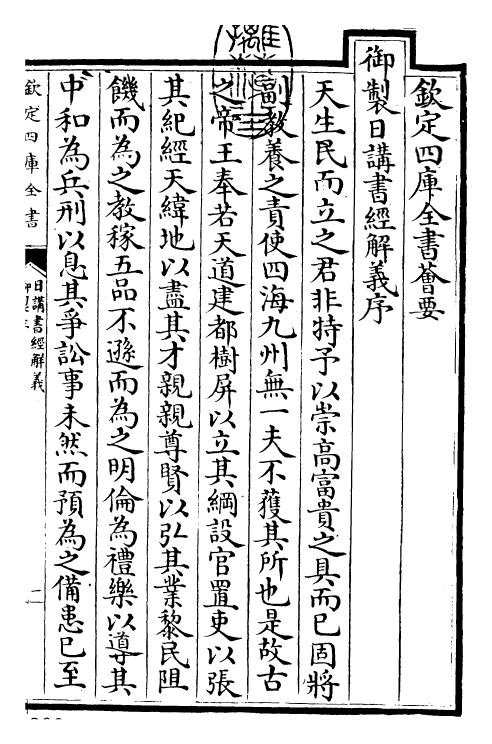 欽定四庫全書薈要
御製日講書經解義序
天生民而立之君非特予以崇高富貴之具而已固將
副敎養之責使四海九州無一夫不獲其所也是故古
之帝王奉若天道建都樹屏以立其綱設官置吏以張
其紀經天緯地以盡其才親親尊賢以弘其業黎民阻
饑而為之教稼五品不遜而為之明倫為禮樂以導其
中和為兵刑以息其爭訟事未然而預為之備患已至
欽定四庫全書
日講書經解義
二